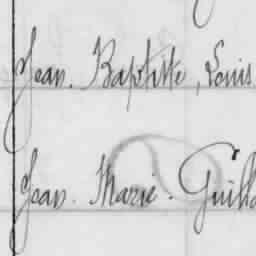 Jean. Baptiste, Louis
Jean. Marie. Guill